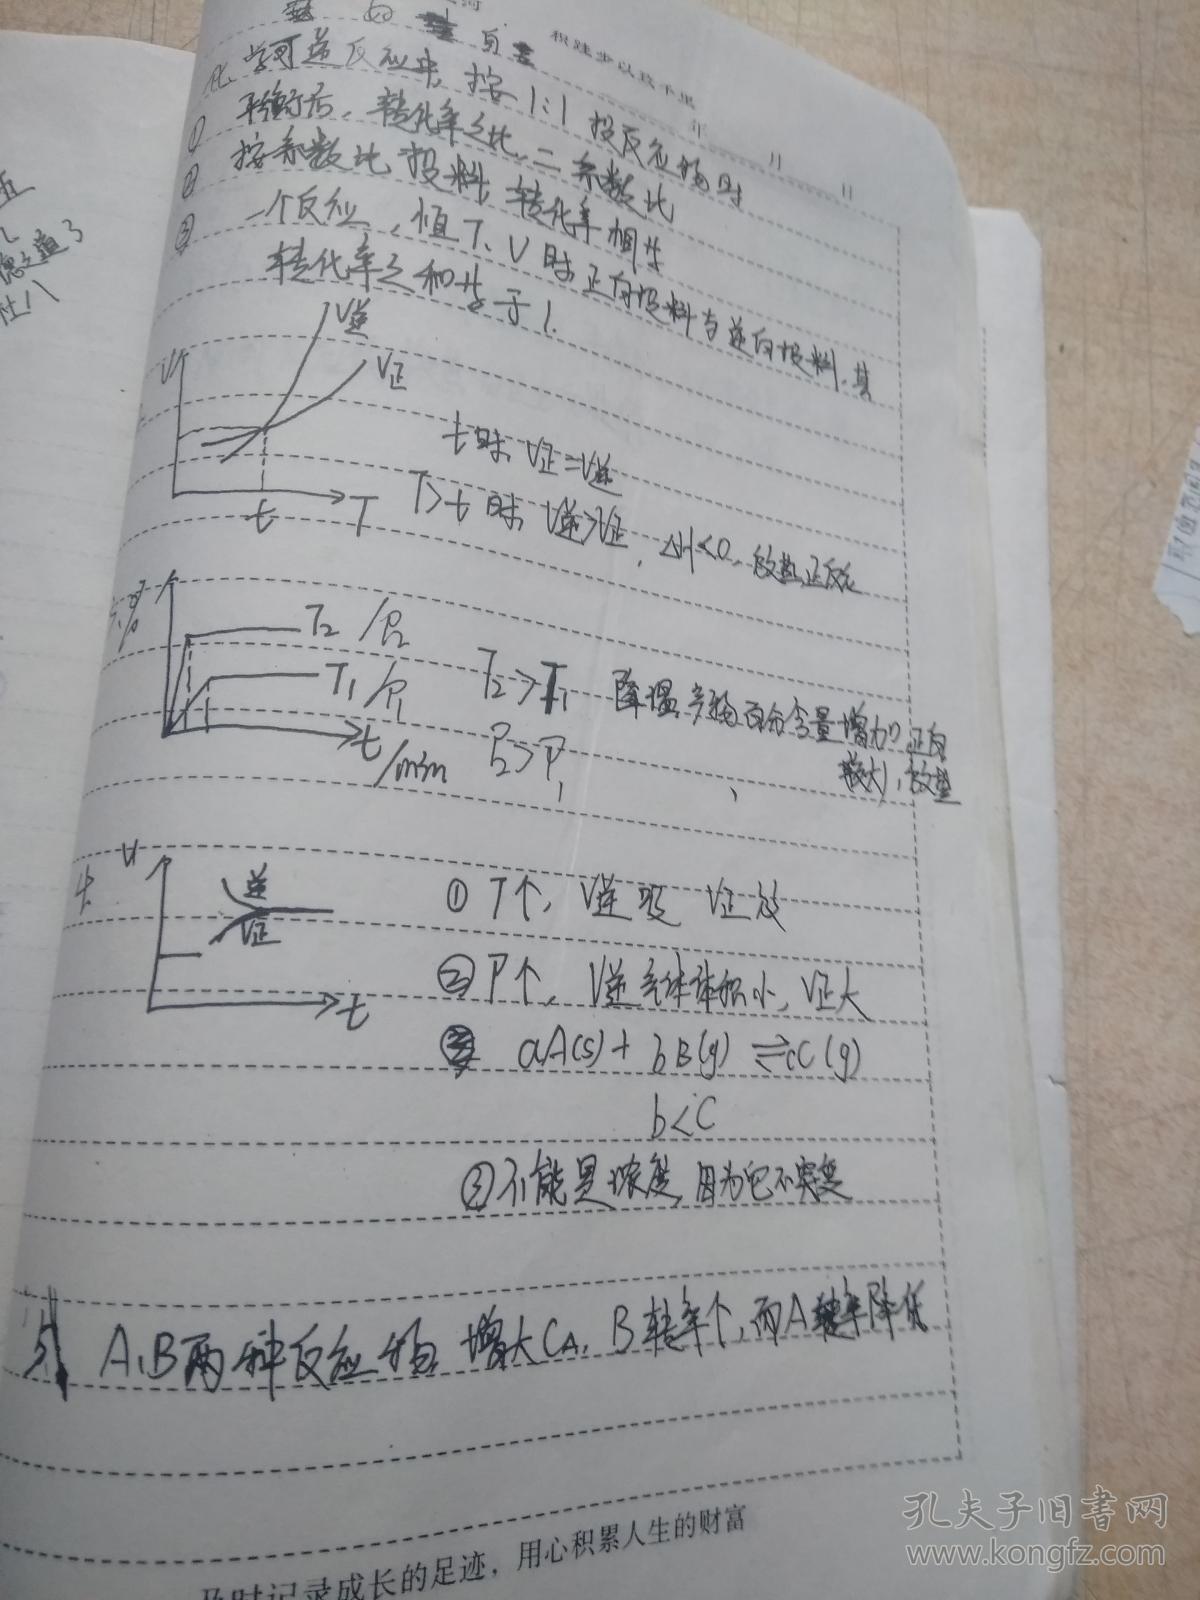 积跬步以致千里
年 月 日
化学可逆反应中, 按1:1投反应物时
① 平衡后, 转化率之比 = 系数比
② 按系数比投料, 转化率相等
③ 一个反应, 恒T、V时正向投料与逆向投料, 其
转化率之和等于1.
V逆
V正
t
T
t时, V正=V逆
T>t时 V逆>V正, ΔH<0, 放热正反应
T2/P2
T1/P1
t/min
T2>T1 降温产物百分含量增加 正向
P2>P1 较大, 放热
逆
V正
t
① T个, V逆吸 V正放
② P个, V逆气体体积小, V正大
aA(s)+bB(g)⇌cC(g)
b<C
③ 不能是浓度, 因为它不突变
A、B两种反应物, 增大CA, B转率个, 而A转率降低
及时记录成长的足迹，用心积累人生的财富
孔夫子旧书网
www.kongfz.com